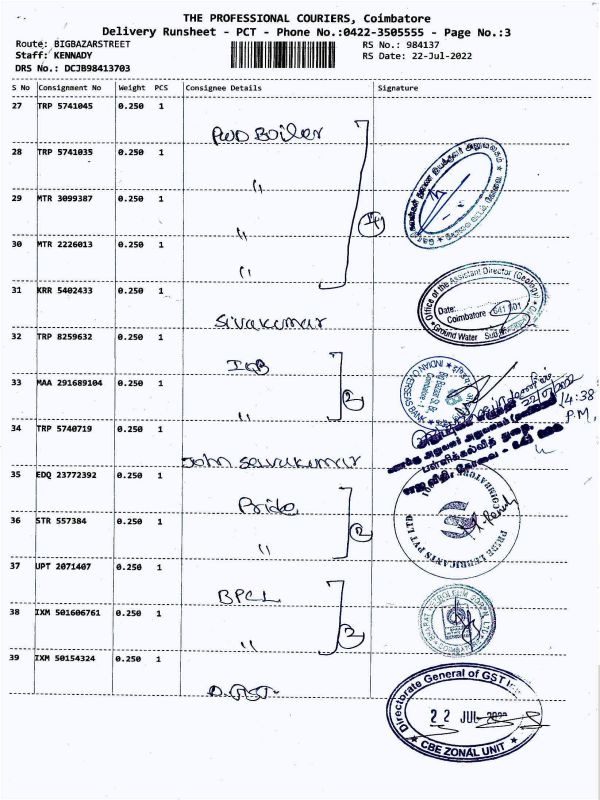 THE PROFESSIONAL COURIERS, Coimbatore
Delivery Runsheet - PCT - Phone No.:0422-3505555 - Page No.:3
Route: BIGBAZARSTREET RS No.: 984137
Staff: KENNADY RS Date: 22-Jul-2022
DRS No.: DCJB98413703
S No Consignment No Weight PCS Consignee Details Signature
27 TRP 5741045 0.250 1
PWD Boiler
28 TRP 5741035 0.250 1
"
29 MTR 3099387 0.250 1
"
30 MTR 2226013 0.250 1
"
31 KRR 5402433 0.250 1
Office of the Assistant Director (Geology)
Date:
Coimbatore 641 001
Ground Water
Sivakumar
32 TRP 8259632 0.250 1
IOB
INDIAN OVERSEAS BANK
33 MAA 291689104 0.250 1
2
"
22/07/2022
4:38
P.M,
34 TRP 5740719 0.250 1
John Selvakumar
35 EDQ 23772392 0.250 1
Pride
PRIDE LUBRICANTS PVT LTD
36 STR 557384 0.250 1
2
"
37 UPT 2071407 0.250 1
BPCL
38 IXM 501606761 0.250 1
2
"
39 IXM 50154324 0.250 1
D.GST
Directorate General of GST
22 JUL 2022
CBE ZONAL UNIT